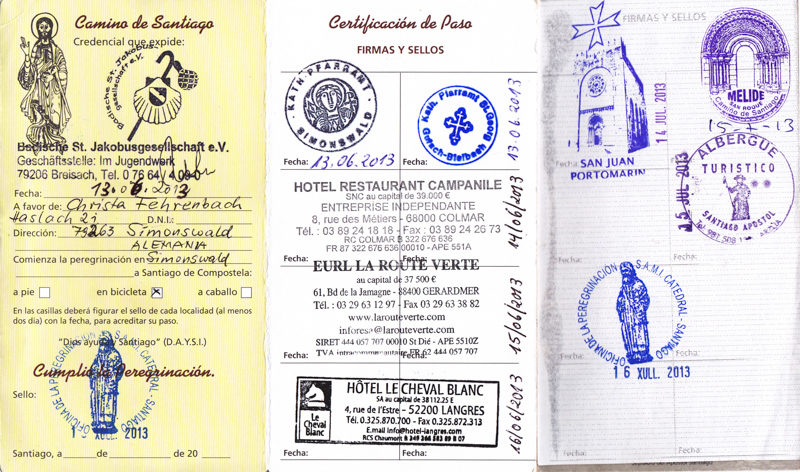 Camino de Santiago
Credencial que expide:
Badische St. Jakobus-
gesellschaft e.V.
Badische St. Jakobusgesellschaft e.V.
Geschäftsstelle: Im Jugendwerk
79206 Breisach, Tel. 0 76 64/ 4 09-0
Fecha: 13.06.2013
A favor de: Christa Fehrenbach
Haslach 2i D.N.I.:
Dirección: 79263 Simonswald
ALEMANIA
Comienza la peregrinación en Simonswald
a Santiago de Compostela:
a pie en bicicleta a caballo
En las casillas deberá figurar el sello de cada localidad (al menos
dos día) con la fecha, para acreditar su paso.
"Dios ayuda y Santiago" (D.A.Y.S.I.)
Cumplió la Peregrinación.
OFICINA DE LA PEREGRINACION S.A.M.I. CATEDRAL - SANTIAGO
Sello:
XULL. 2013
Santiago, a de de 20
Certificación de Paso
FIRMAS Y SELLOS
KATH. PFARRAMT
SIMONSWALD
Fecha: 13.06.2013
Kath. Pfarramt St.Georg
Fecha:
13.06.2013
HOTEL RESTAURANT CAMPANILE
SNC au capital de 39.000 €
ENTREPRISE INDEPENDANTE
8, rue des Métiers - 68000 COLMAR
Tél. : 03 89 24 18 18 - Fax : 03 89 24 26 73
RC COLMAR B 322 676 636
FR 87 322 676 636 00010 - APE 551A
Fecha: Fecha:
14/06/2013
EURL LA ROUTE VERTE
au capital de 37 500 €
61, Bd de la Jamagne - 88400 GERARDMER
Tél. : 03 29 63 12 97 - Fax 03 29 63 38 82
www.larouteverte.com
inforesa@larouteverte.com
SIRET 444 057 707 00010 St Dié - APE 5510Z
TVA intracommunautaire FR 62 444 057 707
Fecha: Fecha:
15/06/2013
Le
Cheval
Blanc
HÔTEL LE CHEVAL BLANC
SA au capital de 38112.25 E
4, rue de l'Estre - 52200 LANGRES
Tél. 0.325.870.700 - Fax 0.325.872.313
E.mail info@hotel-langres.com
RCS Chaumont B 349 366 583 89 B 07
Fecha: Fecha:
16/06/2013
FIRMAS Y SELLOS
SAN JUAN
PORTOMARIN
14 JUL. 2013
MELIDE
SAN ROQUE
Camino de Santiago
15-7-13
15 JUL 2013
ALBERGUE
TURISTICO
SANTIAGO APOSTOL
OFICINA DE LA PEREGRINACION S.A.M.I. CATEDRAL - SANTIAGO
Fecha:
16 XULL. 2013